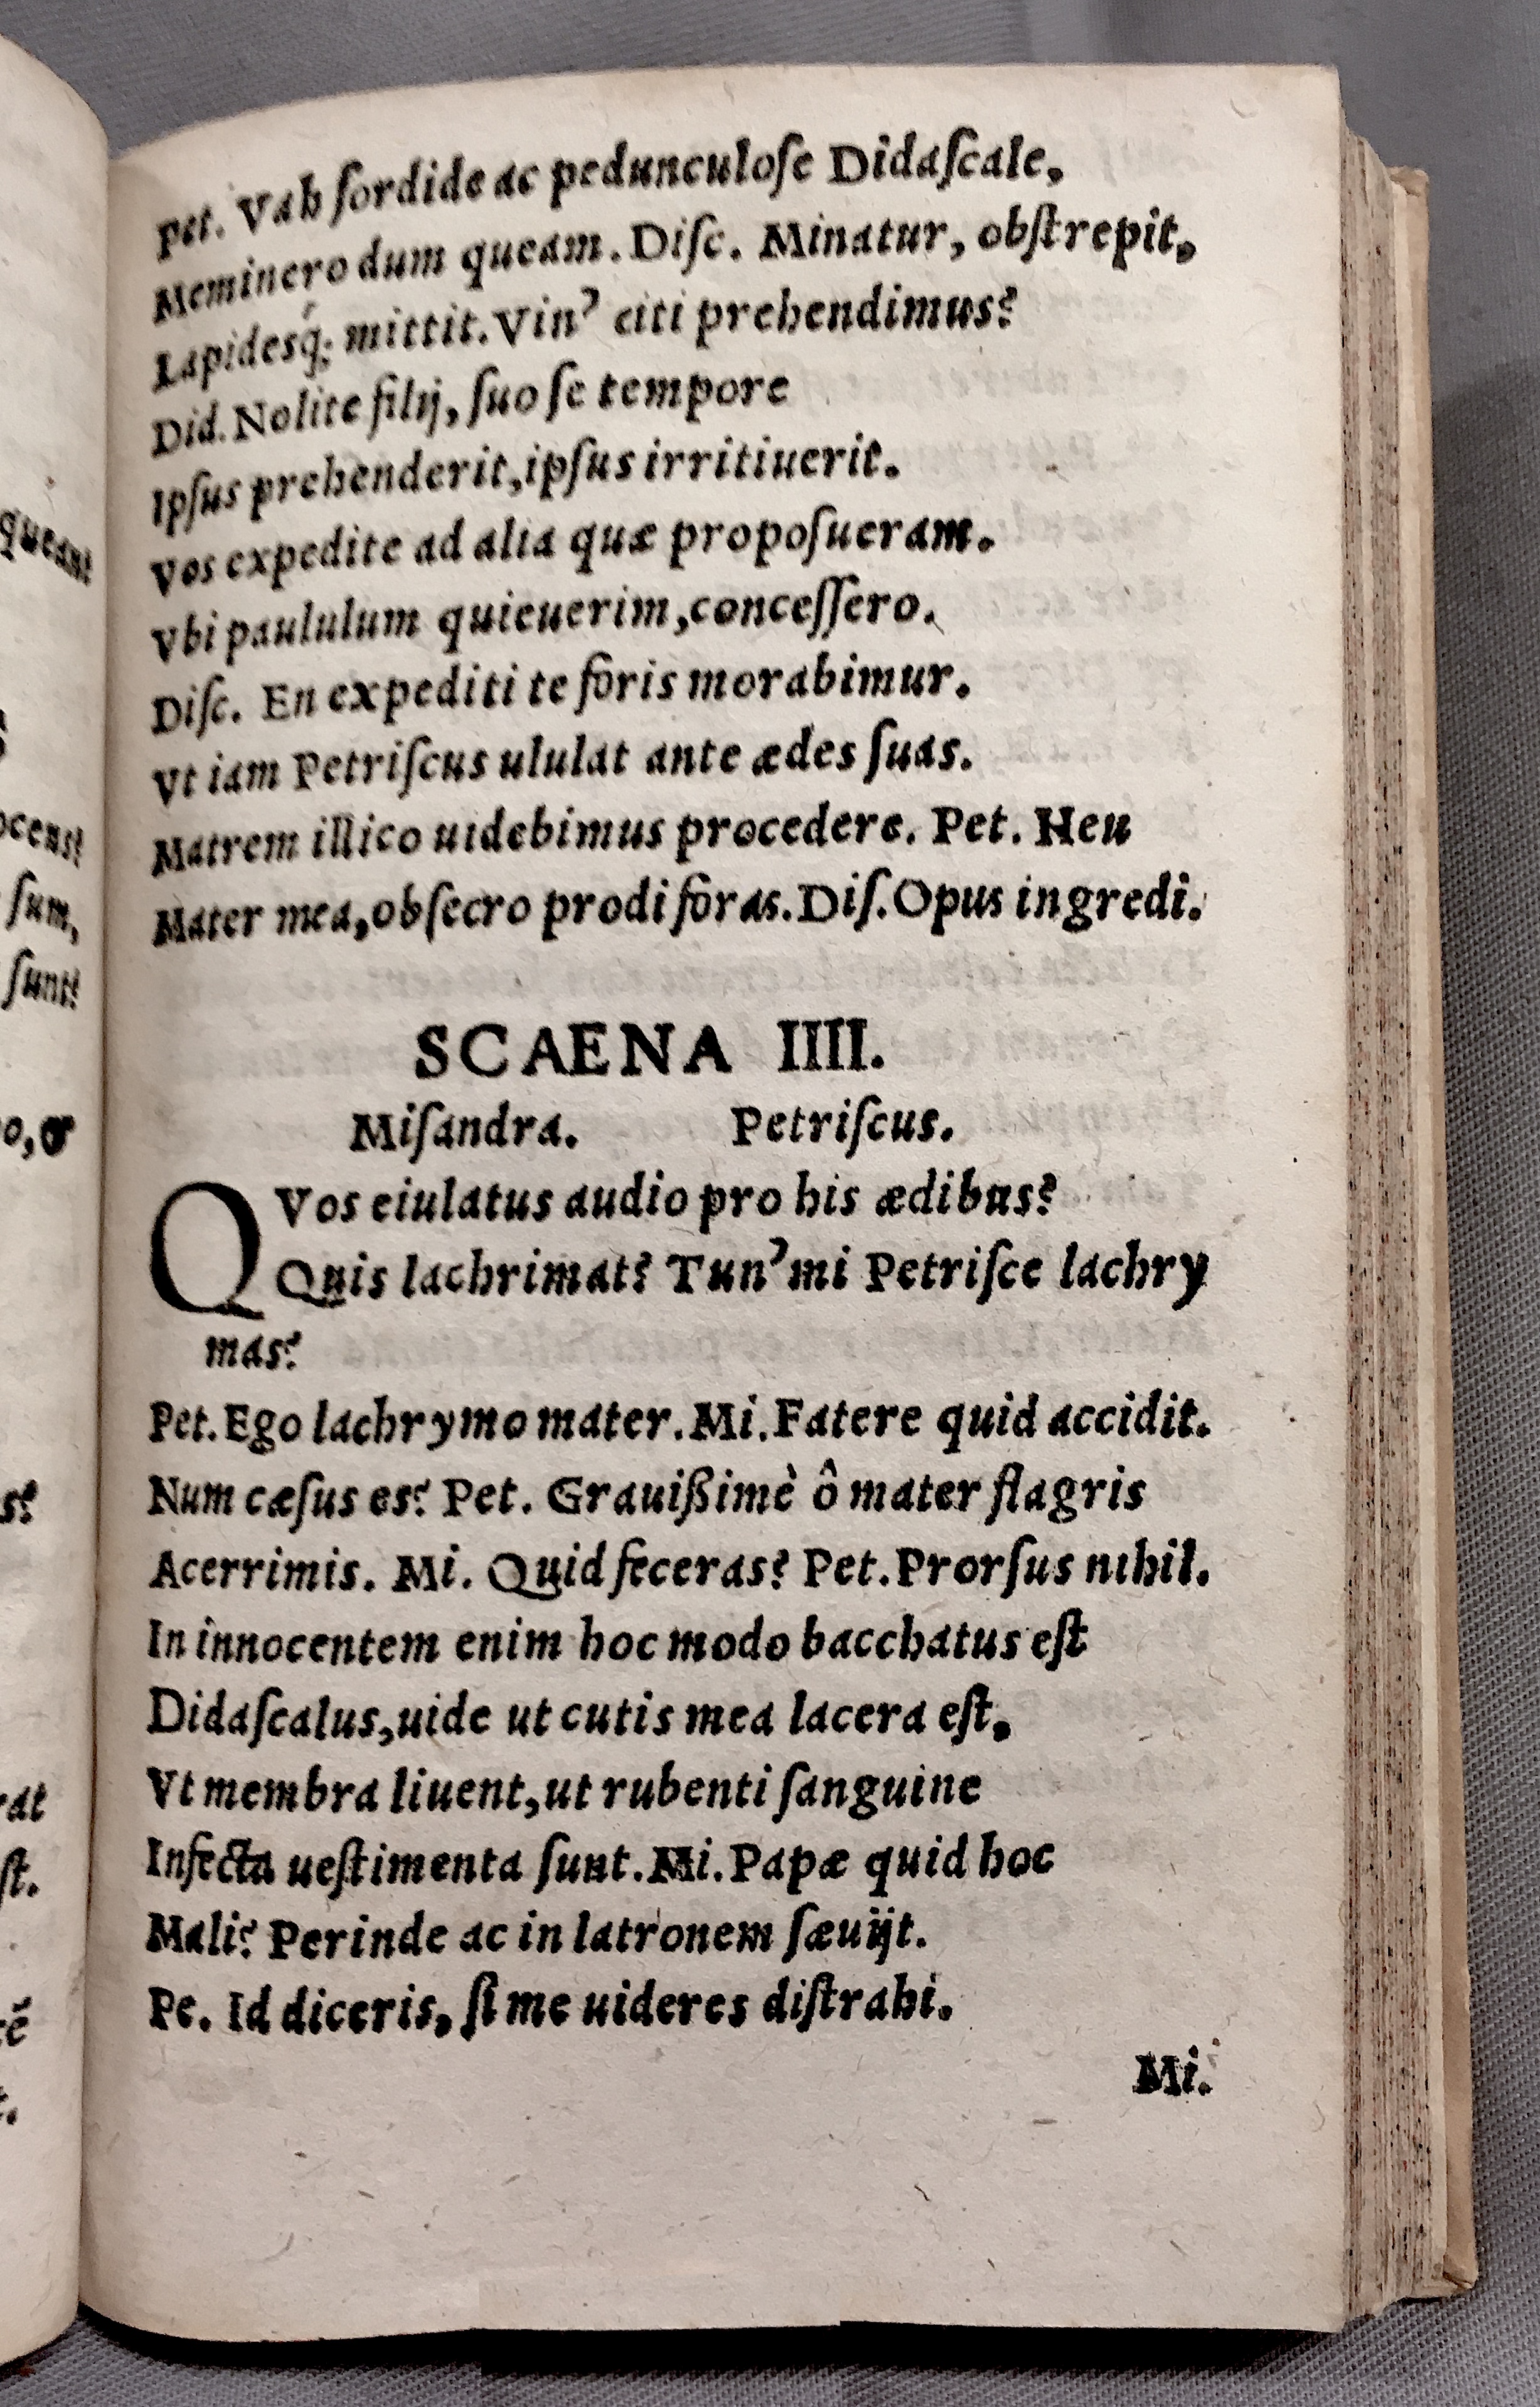 Pet. Vah ſordide ac pedunculoſe Didaſcale,
Meminero dum queam. Diſc. Minatur, obſtrepit,
Lapideſq́; mittit. Vin' citi prehendimus?
Did. Nolite filij, ſuo ſe tempore
Ipſus prehenderit, ipſus irritiuerit.
Vos expedite ad alia quæ propoſueram.
Vbi paululum quieuerim, conceſſero.
Diſc. En expediti te foris morabimur.
Vt iam Petriſcus ululat ante ædes ſuas.
Matrem illico uidebimus procedere. Pet. Heu
Mater mea, obſecro prodi foras. Diſ. Opus ingredi.
SCAENA IIII.
Miſandra. Petriſcus.
QVos eiulatus audio pro his ædibus?
Quis lachrimat? Tun' mi Petriſce lachry
mas?
Pet. Ego lachrymo mater. Mi. Fatere quid accidit.
Num cæſus es? Pet. Grauißimè ô mater flagris
Acerrimis. Mi. Quid feceras? Pet. Prorſus nihil.
In innocentem enim hoc modo bacchatus eſt
Didaſcalus, uide ut cutis mea lacera eſt,
Vt membra liuent, ut rubenti ſanguine
Infecta ueſtimenta ſunt. Mi. Papæ quid hoc
Mali? Perinde ac in latronem ſæuijt.
Pe. Id diceris, ſi me uideres diſtrahi.
Mi.